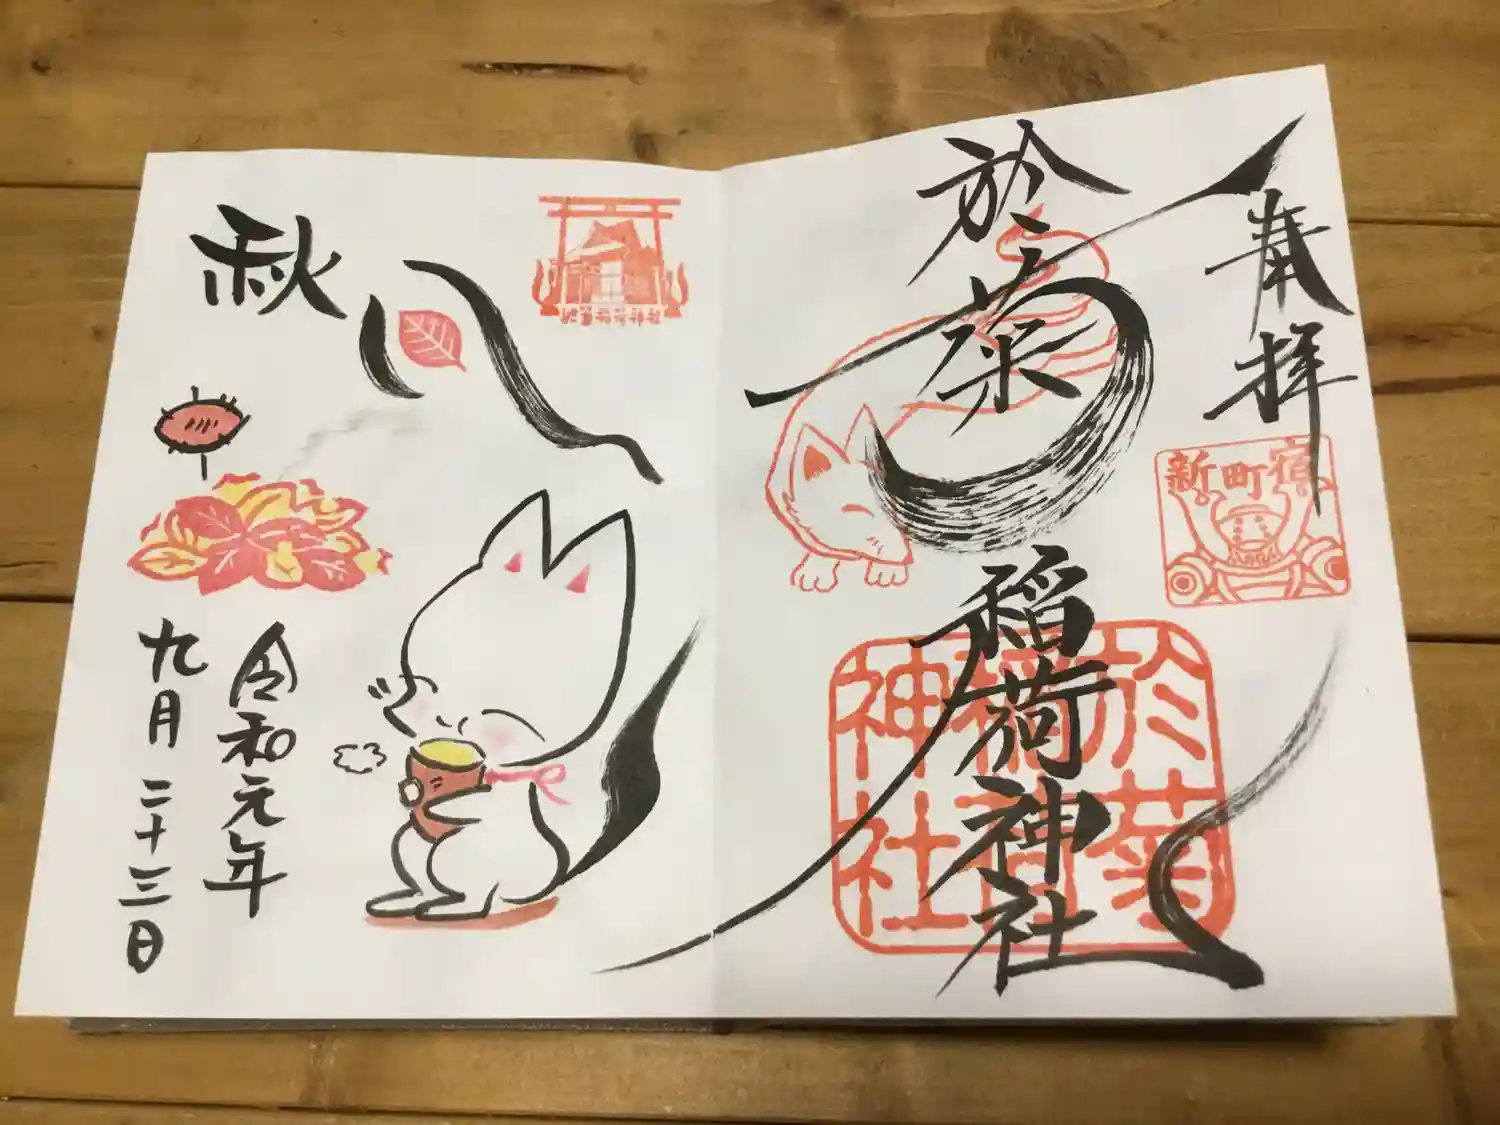 奉拝
新町宿
於菊稲荷神社
於菊
稲荷
神社
秋
於菊稲荷神社
令和元年
九月二十三日